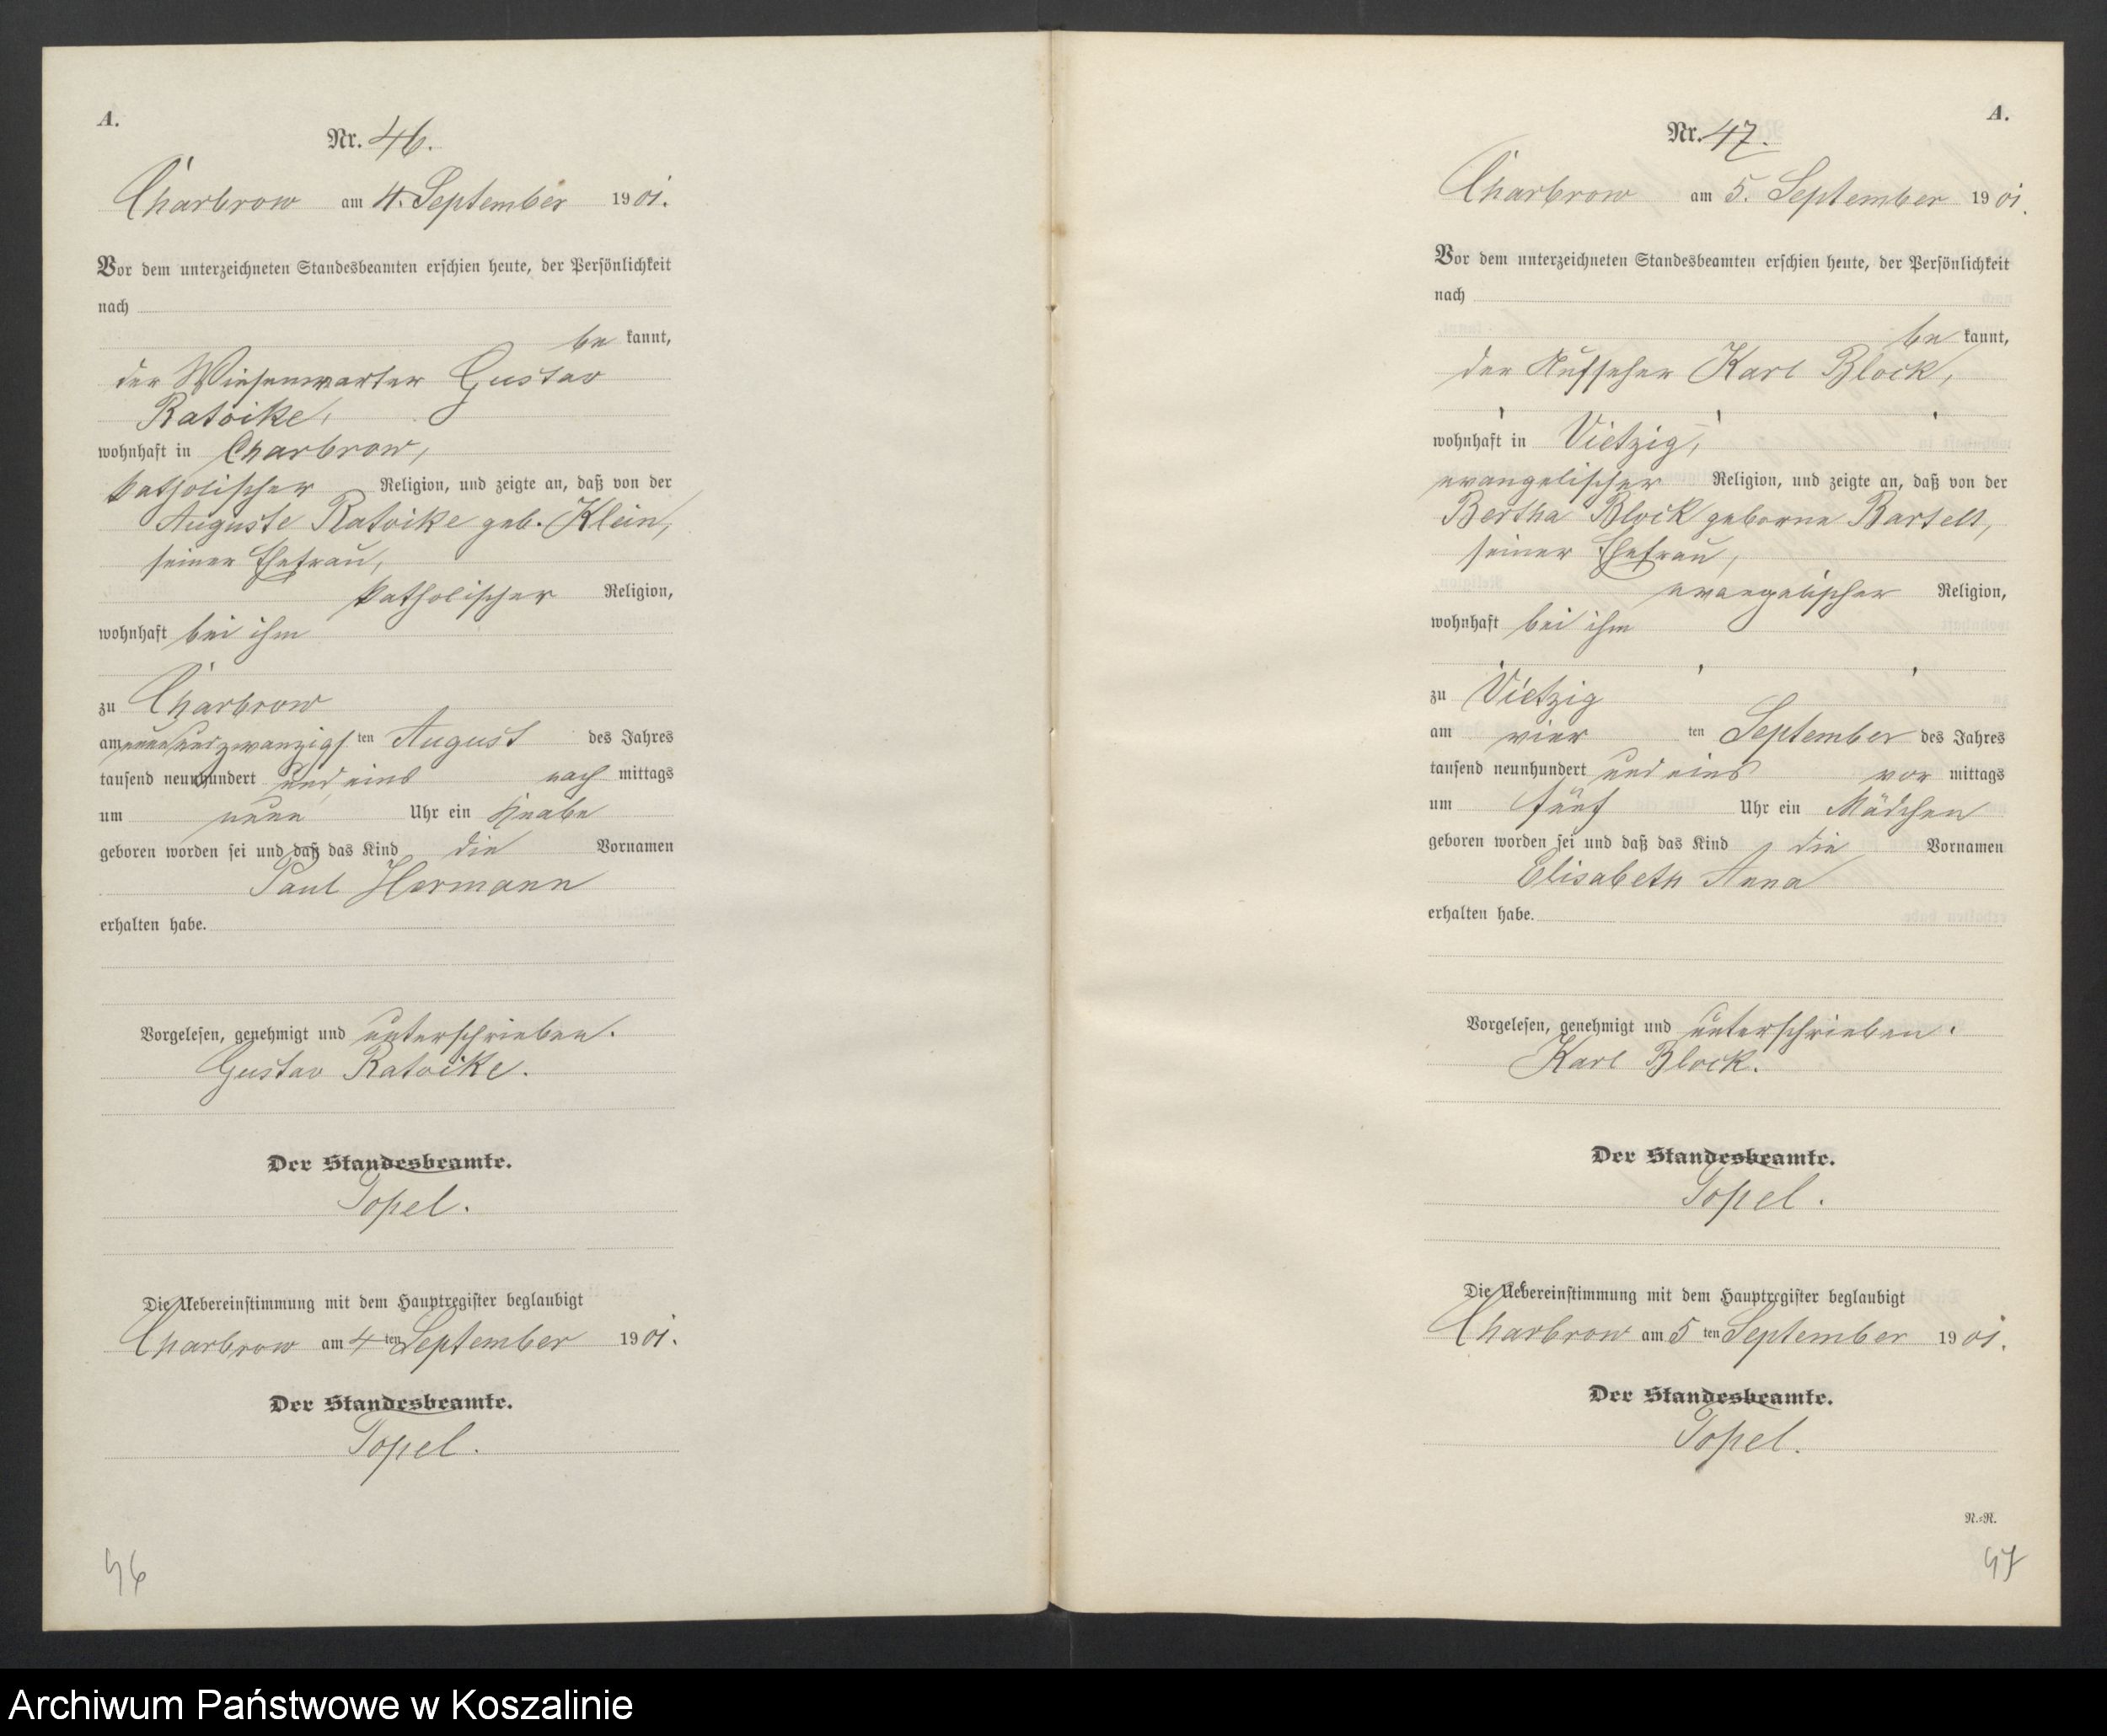 A.
Nr. 46.
Charbrow am 4. September 1901.
Vor dem unterzeichneten Standesbeamten erschien heute, der Persönlichkeit
nach
be kannt,
der Wiesenwärter Gustav
Ratoike,
wohnhaft in Charbrow,
katholischer Religion, und zeigte an, daß von der
Auguste Ratoike geb. Klein,
seiner Ehefrau,
katholischer Religion,
wohnhaft bei ihm
zu Charbrow
am neunundzwanzigs ten August des Jahres
tausend neunhundert und eins nach mittags
um neun Uhr ein Knabe
geboren worden sei und daß das Kind die Vornamen
Paul Hermann
erhalten habe.
Vorgelesen, genehmigt und unterschrieben.
Gustav Ratoike.
Der Standesbeamte.
Topel.
Die Uebereinstimmung mit dem Hauptregister beglaubigt
Charbrow am 4 ten September 1901.
Der Standesbeamte.
Topel.
46
A.
Nr. 47.
Charbrow am 5. September 1901.
Vor dem unterzeichneten Standesbeamten erschien heute, der Persönlichkeit
nach
be kannt,
der Aufseher Karl Block,
wohnhaft in Vietzig,
evangelischer Religion, und zeigte an, daß von der
Bertha Block geborne Bartelt,
seiner Ehefrau,
evangelischer Religion,
wohnhaft bei ihm
zu Vietzig
am vier ten September des Jahres
tausend neunhundert und eins vor mittags
um fünf Uhr ein Mädchen
geboren worden sei und daß das Kind die Vornamen
Elisabeth Anna
erhalten habe.
Vorgelesen, genehmigt und unterschrieben.
Karl Block.
Der Standesbeamte.
Topel.
Die Uebereinstimmung mit dem Hauptregister beglaubigt
Charbrow am 5 ten September 1901.
Der Standesbeamte.
Topel.
N.=N.
47
Archiwum Państwowe w Koszalinie